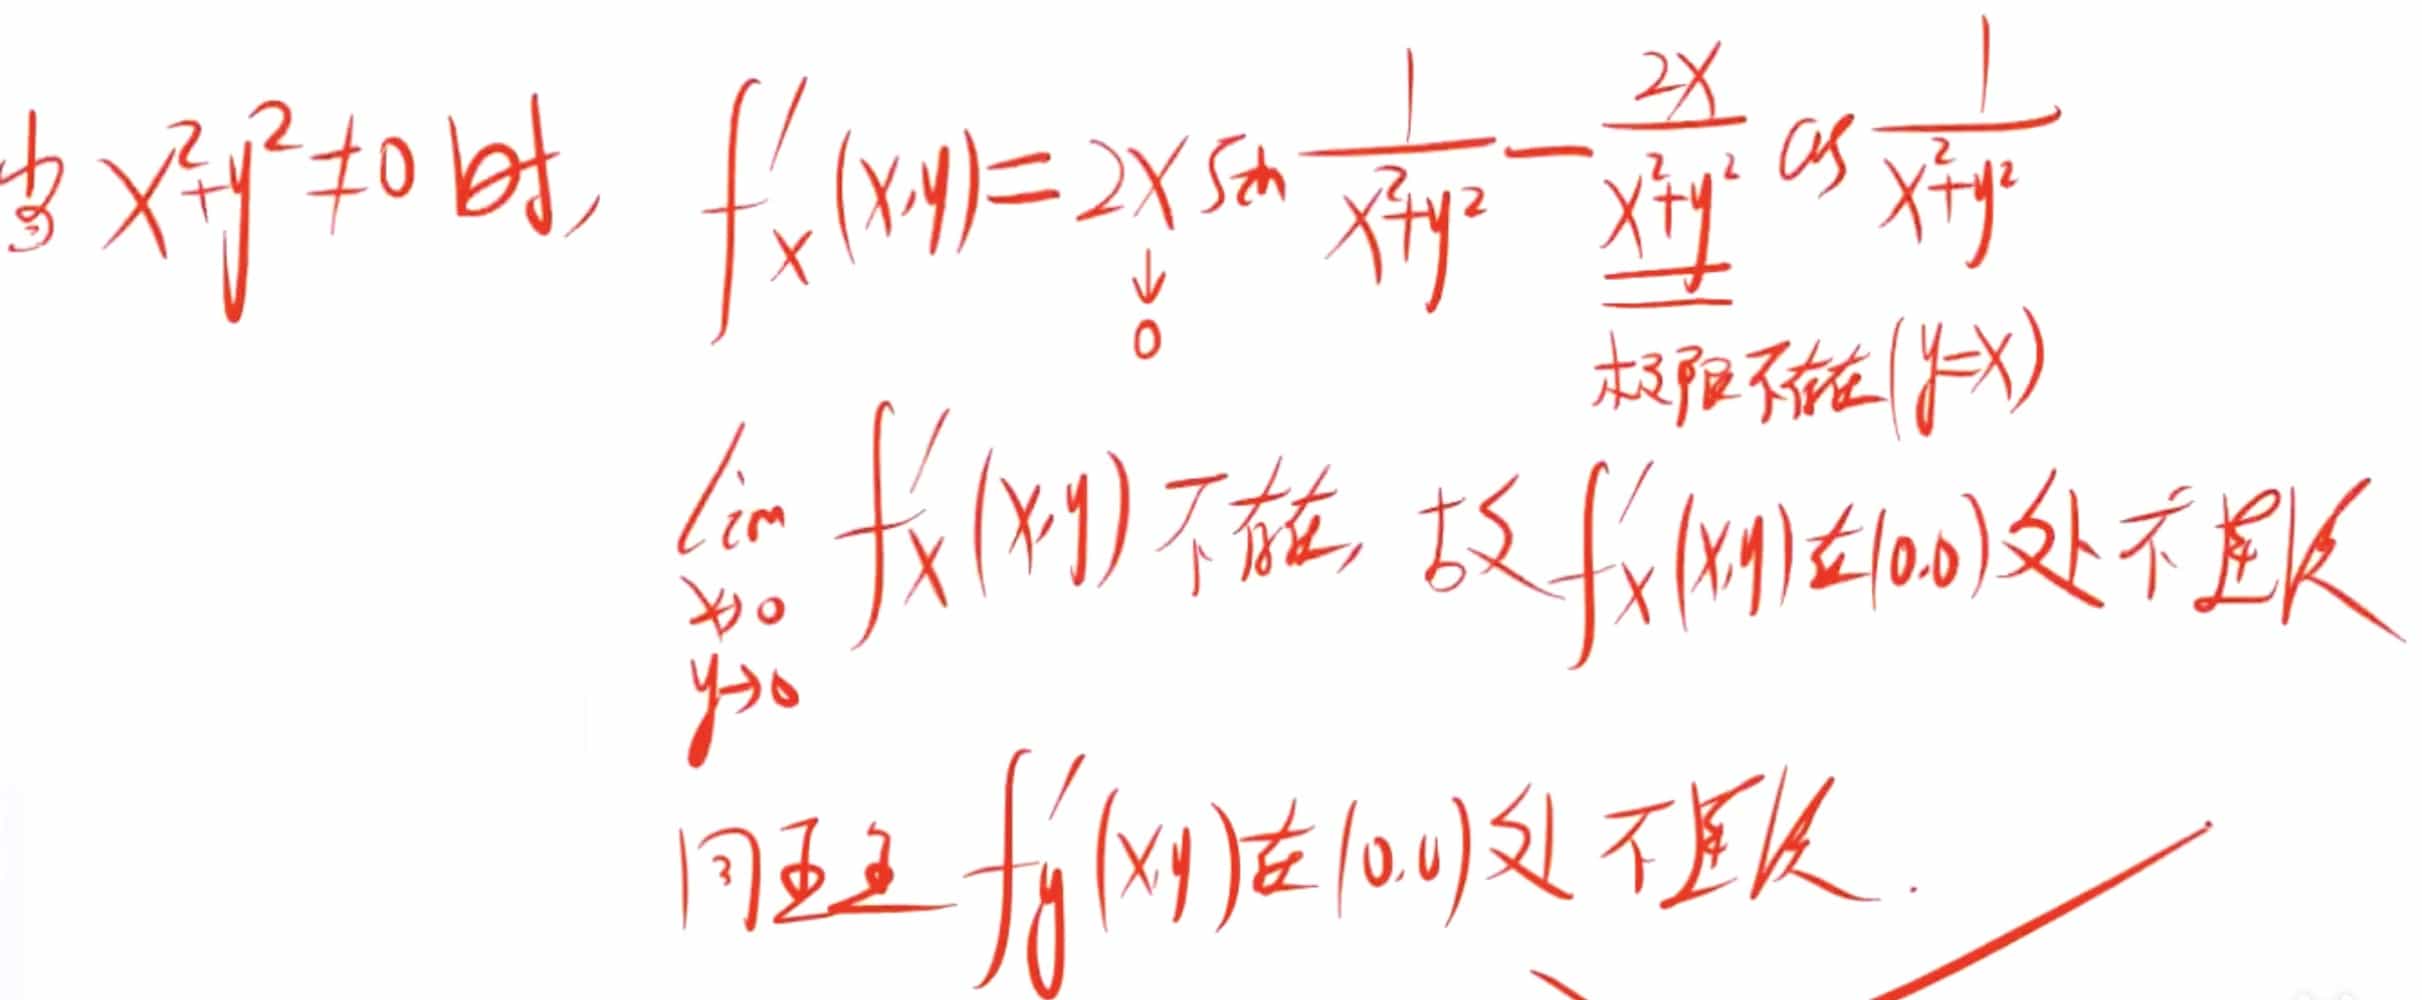 当 x²+y²≠0 时, f'ₓ(x,y)=2x sin 1/(x²+y²) − 2x/(x²+y²) cos 1/(x²+y²)
↓
0
极限不存在(y=x)
lim f'ₓ(x,y) 不存在, 故 f'ₓ(x,y) 在(0,0)处不连续
x→0
y→0
同理 f'y(x,y) 在(0,0)处不连续.